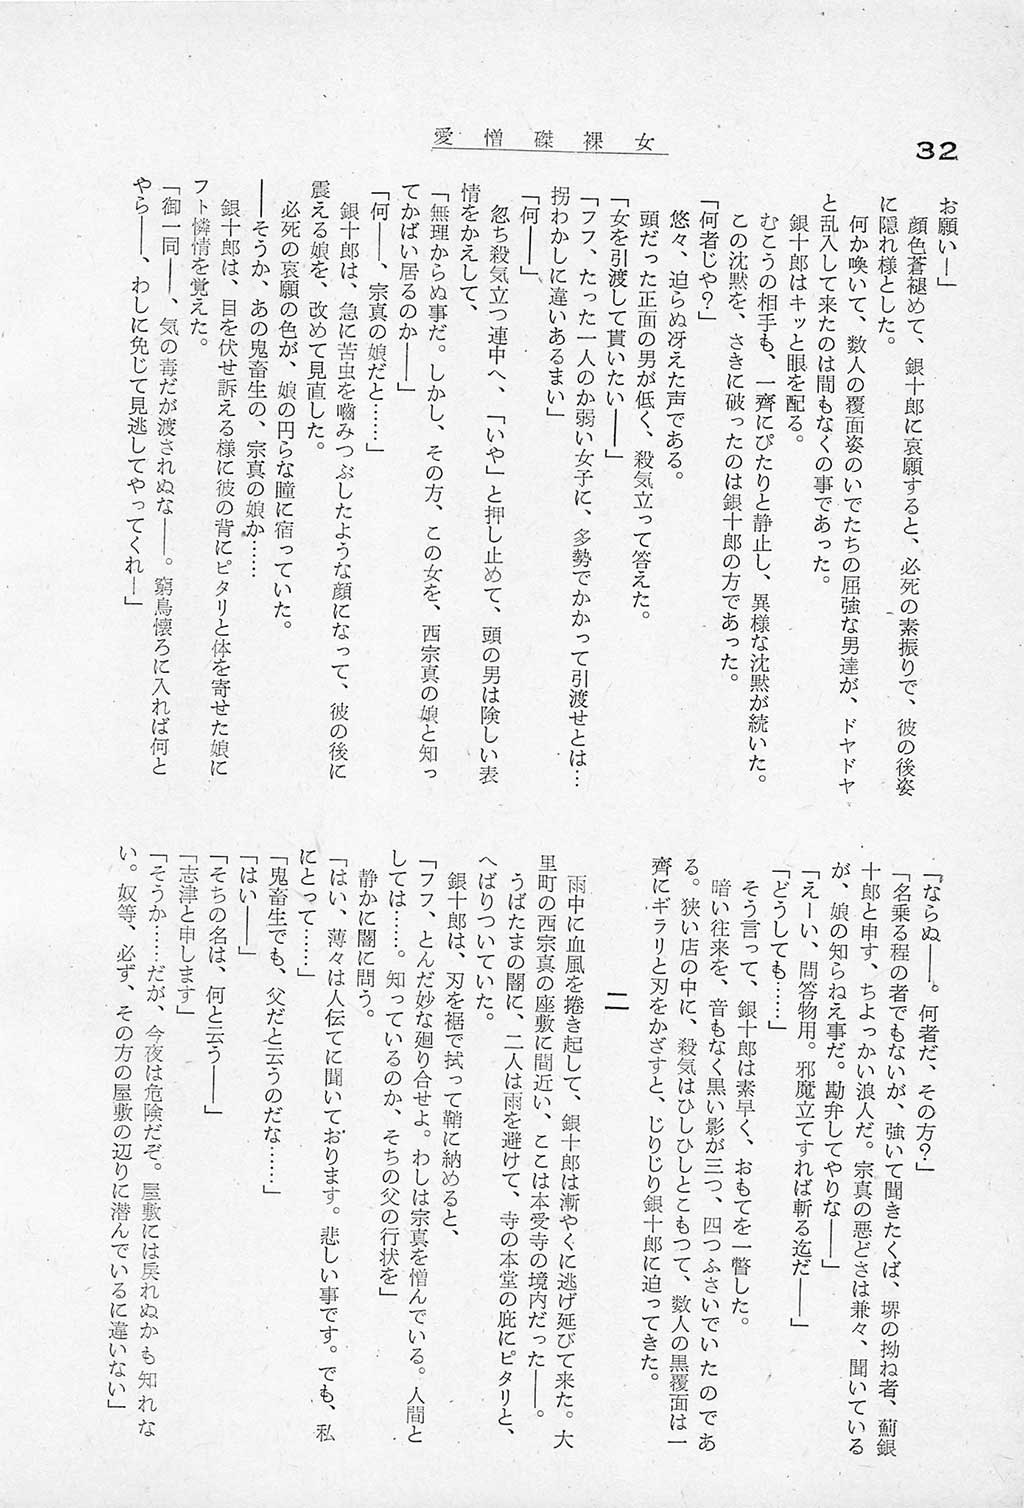 32
愛憎磔裸女
お願い―」
顔色蒼褪めて、銀十郎に哀願すると、必死の素振りで、彼の後姿
に隠れ様とした。
何か喚いて、数人の覆面姿のいでたちの屈強な男達が、ドヤドヤ
と乱入して来たのは間もなくの事であった。
銀十郎はキッと眼を配る。
むこうの相手も、一齊にぴたりと静止し、異様な沈黙が続いた。
この沈黙を、さきに破ったのは銀十郎の方であった。
「何者じや?」
悠々、迫らぬ冴えた声である。
頭だった正面の男が低く、殺気立って答えた。
「女を引渡して貰いたい――」
「フフ、たった一人のか弱い女子に、多勢でかかって引渡せとは…
拐わかしに違いあるまい」
「何――」
忽ち殺気立つ連中へ、「いや」と押し止めて、頭の男は険しい表
情をかえして、
「無理からぬ事だ。しかし、その方、この女を、西宗真の娘と知っ
てかばい居るのか――」
「何――、宗真の娘だと……」
銀十郎は、急に苦虫を噛みつぶしたような顔になって、彼の後に
震える娘を、改めて見直した。
必死の哀願の色が、娘の円らな瞳に宿っていた。
――そうか、あの鬼畜生の、宗真の娘か……
銀十郎は、目を伏せ訴える様に彼の背にピタリと体を寄せた娘に
フト憐情を覚えた。
「御一同――、気の毒だが渡されぬな――。窮鳥懐ろに入れば何と
やら――、わしに免じて見逃してやってくれ―」
「ならぬ――。何者だ、その方?」
「名乗る程の者でもないが、強いて聞きたくば、堺の拗ね者、薊銀
十郎と申す、ちよっかい浪人だ。宗真の悪どさは兼々、聞いている
が、娘の知らねえ事だ。勘弁してやりな――」
「えーい、問答物用。邪魔立てすれば斬る迄だ――」
「どうしても……」
そう言って、銀十郎は素早く、おもてを一瞥した。
暗い往来を、音もなく黒い影が三つ、四つふさいでいたのであ
る。狭い店の中に、殺気はひしひしとこもつて、数人の黒覆面は一
齊にギラリと刃をかざすと、じりじり銀十郎に迫ってきた。
二
雨中に血風を捲き起して、銀十郎は漸やくに逃げ延びて来た。大
里町の西宗真の座敷に間近い、ここは本受寺の境内だった――。
うばたまの闇に、二人は雨を避けて、寺の本堂の庇にピタリと、
へばりついていた。
銀十郎は、刃を裾で拭って鞘に納めると、
「フフ、とんだ妙な廻り合せよ。わしは宗真を憎んでいる。人間と
しては……。知っているのか、そちの父の行状を」
静かに闇に問う。
「はい、薄々は人伝てに聞いております。悲しい事です。でも、私
にとって……」
「鬼畜生でも、父だと云うのだな……」
「はい――」
「そちの名は、何と云う――」
「志津と申します」
「そうか……だが、今夜は危険だぞ。屋敷には戻れぬかも知れな
い。奴等、必ず、その方の屋敷の辺りに潜んでいるに違いない」